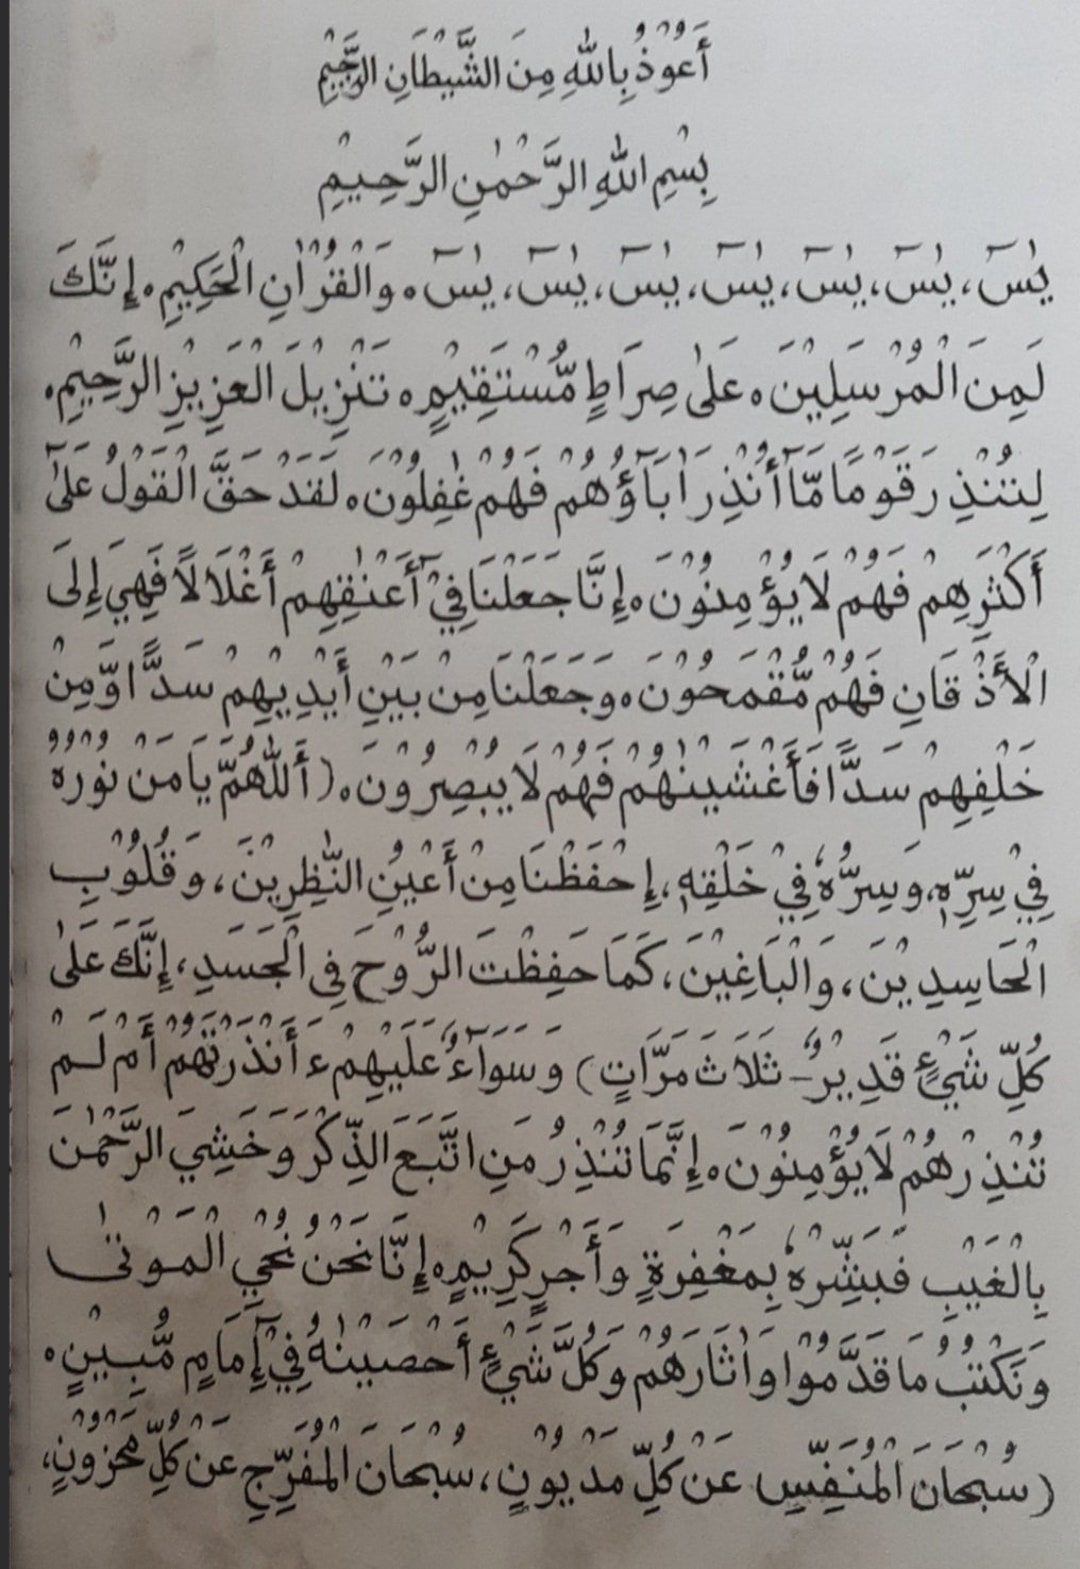 أَعُوْذُ بِاللهِ مِنَ الشَّيْطَانِ الرَّجِيْمِ
بِسْمِ اللهِ الرَّحْمٰنِ الرَّحِيْمِ
يٰسٓ، يٰسٓ، يٰسٓ، يٰسٓ، يٰسٓ، يٰسٓ، يٰسٓ ۰ وَالْقُرْاٰنِ الْحَكِيْمِ ۰ إِنَّكَ
لَمِنَ الْمُرْسَلِيْنَ ۰ عَلٰى صِرَاطٍ مُّسْتَقِيْمٍ ۰ تَنْزِيْلَ الْعَزِيْزِ الرَّحِيْمِ ۰
لِتُنْذِرَ قَوْمًا مَّآ أُنْذِرَ اٰبَآؤُهُمْ فَهُمْ غٰفِلُوْنَ ۰ لَقَدْ حَقَّ الْقَوْلُ عَلٰٓى
أَكْثَرِهِمْ فَهُمْ لَا يُؤْمِنُوْنَ ۰ إِنَّا جَعَلْنَا فِيْٓ أَعْنٰقِهِمْ أَغْلَالًا فَهِيَ إِلَى
الْأَذْقَانِ فَهُمْ مُّقْمَحُوْنَ ۰ وَجَعَلْنَا مِنْ بَيْنِ أَيْدِيْهِمْ سَدًّا وَّمِنْ
خَلْفِهِمْ سَدًّا فَأَغْشَيْنٰهُمْ فَهُمْ لَا يُبْصِرُوْنَ ۰ ( أَللّٰهُمَّ يَا مَنْ نُوْرُهُ
فِيْ سِرِّهٖ، وَسِرُّهُ فِيْ خَلْقِهٖ، إِحْفَظْنَا مِنْ أَعْيُنِ النّٰظِرِيْنَ، وَقُلُوْبِ
الْحَاسِدِيْنَ، وَالْبَاغِيْنَ، كَمَا حَفِظْتَ الرُّوْحَ فِى الْجَسَدِ، إِنَّكَ عَلٰى
كُلِّ شَيْئٍ قَدِيْرٌ - ثَلَاثَ مَرَّاتٍ ) وَسَوَآءٌ عَلَيْهِمْ ءَ أَنْذَرْتَهُمْ أَمْ لَمْ
تُنْذِرْهُمْ لَا يُؤْمِنُوْنَ ۰ إِنَّمَا تُنْذِرُ مَنِ اتَّبَعَ الذِّكْرَ وَخَشِيَ الرَّحْمٰنَ
بِالْغَيْبِ فَبَشِّرْهُ بِمَغْفِرَةٍ وَأَجْرٍ كَرِيْمٍ ۰ إِنَّا نَحْنُ نُحْيِ الْمَوْتٰى
وَنَكْتُبُ مَا قَدَّمُوْا وَاٰثَارَهُمْ وَكُلَّ شَيْئٍ أَحْصَيْنٰهُ فِيْٓ إِمَامٍ مُّبِيْنٍ ۰
( سُبْحَانَ الْمُنَفِّسِ عَنْ كُلِّ مَدْيُوْنٍ، سُبْحَانَ الْمُفَرِّجِ عَنْ كُلِّ مَحْزُوْنٍ،